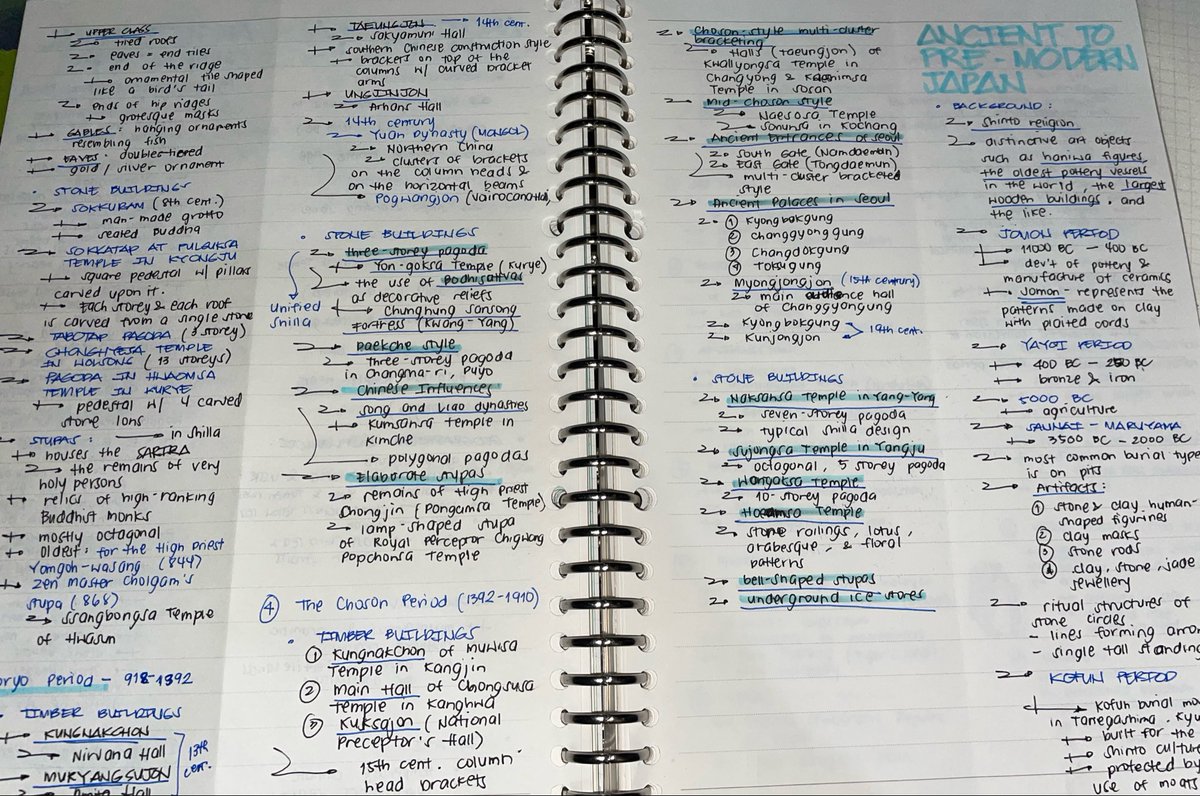 UPPER CLASS
tiled roofs
eaves = end tiles
end of the ridge
ornamental tile shaped
like a bird's tail
ends of hip ridges
grotesque masks
GABLES: hanging ornaments
resembling fish
EAVES: double-tiered
gold / silver ornament
• STONE BUILDINGS
SOKKURAM (8th cent.)
man-made grotto
seated Buddha
SOKKATAP AT PULGUKSA
TEMPLE IN KYONGJU
square pedestal w/ pillars
carved upon it.
Each storey & each roof
is carved from a single stone
TABOTAP PAGODA (3 storey)
CHONGHYESA TEMPLE
IN WOLSONG (13 storeys)
PAGODA IN HWAOMSA
TEMPLE IN KURYE
pedestal w/ 4 carved
stone lions
STUPAS: in Shilla
houses the SARIRA
the remains of very
holy persons
relics of high-ranking
Buddhist monks
mostly octagonal
oldest: for the High Priest
Yomgoh-wasang (844)
Zen master Cholgam's
stupa (868)
Ssangbongsa Temple
of Hwasun
oryo Period - 918-1392
• TIMBER BUILDINGS
KUNGNAKCHON
Nirvana Hall
MURYANGSUJON
Amita Hall
13th
cent.
TAEUNGJON 14th cent.
Sakyamuni Hall
southern Chinese construction style
brackets on top of the
columns w/ curved bracket
arms
UNGJINJON
Arhans Hall
14th century
Yuan Dynasty (MONGOL)
Northern China
clusters of brackets
on the column heads &
on the horizontal beams
Pogwangjon (Vairocana Hall)
• STONE BUILDINGS
three-storey pagoda
Yon-goksa Temple (Kurye)
the use of Bodhisattvas
as decorative reliefs
Chunghung Sansong
Fortress (Kwang-Yang)
Unified
Shilla
Paekche style
three-storey pagoda
in Changha-ri, Puyo
Chinese Influences
Song and Liao dynasties
Kumsansa temple in
Kimche
polygonal pagodas
Elaborate stupas
remains of High Priest
Chongjin (Pongamsa Temple)
lamp-shaped stupa
of Royal Perceptor Chigwang
Popchonsa Temple
④ The Choson Period (1392-1910)
• TIMBER BUILDINGS
① Kungnakchon of Muwisa
Temple in Kangjin
② Main Hall of Chongsusa
Temple in Kanghwa
③ Kuksajon (National
Preceptor's Hall)
15th cent. column
head brackets
Choson-style multi-cluster
bracketing
Halls (Taeungjon) of
Kwallyongsa Temple in
Changyong & Kaenimsa
Temple in Sosan
Mid-Choson style
Naesosa Temple
Sonunsa in Kochang
Ancient Entrances of Seoul
South Gate (Namdaemun)
East Gate (Tongdaemun)
multi-cluster bracketed
style
Ancient Palaces in Seoul
① Kyongbokgung
② Changgyonggung
③ Changdokgung
④ Toksugung
Myongjongjon (15th century)
main audience hall
of Changgyongung
Kyongbokgung
Kunjongjon
19th cent.
• STONE BUILDINGS
Naksansa Temple in Yang-Yang
seven-storey pagoda
typical Shilla design
Sujongsa Temple in Yangju
octagonal, 5 storey pagoda
Wongaksa Temple
10-storey pagoda
Hoeamsa Temple
stone railings, lotus,
arabesque, & floral
patterns
bell-shaped stupas
underground ice-stores
ANCIENT TO
PRE-MODERN
JAPAN
• BACKGROUND:
Shinto religion
distinctive art objects
such as haniwa figures,
the oldest pottery vessels
in the world, the largest
wooden buildings, and
the like.
JOMON PERIOD
11000 BC - 400 BC
dev't of pottery &
manufacture of ceramics
Jomon - represents the
patterns made on clay
with plaited cords
YAYOI PERIOD
400 BC - 250 BC
bronze & iron
5000 BC
agriculture
SANNAI - MARUYAMA
3500 BC - 2000 BC
most common burial type
is on pits
Artifacts:
① stone & clay human-
shaped figurines
② clay masks
③ stone rods
④ clay, stone, jade
jewellery
ritual structures of
stone circles.
- lines forming
- single tall standin
KOFUN PERIOD
Kofun burial mo
in Tanegashima, Kyu
built for the
Shinto culture
protected by
use of moats